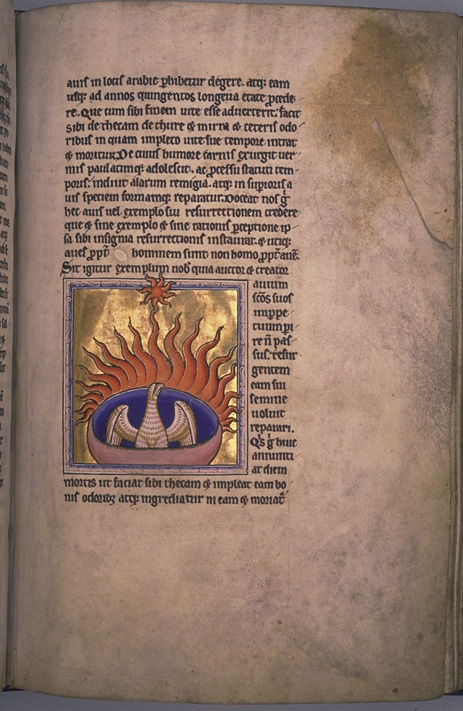 auis in locis arabie phibetur degere. atq; eam
usq; ad annos quingentos longeua etate pcede
re. Que cum sibi finem uite esse aduerterit. facit
sibi de thecam de thure & mirra & ceteris odo
ribus in quam impleto uite sue tempore intrat
& moritur. De cuius humore carnis exurgit uer
mis paulatimq; adolescit. ac pcessu statuti tem
poris. induit alarum remigia. atq; in superioris a
uis speciem formamq; reparatur. Doceat nos g
hec auis uel exemplo sui resurrectionem credere
que & sine exemplo & sine rationis pceptione ip
sa sibi insignia resurrectionis instaurat. & utiq;
aues ppt hominem sunt non homo ppt aue.
Sit igitur exemplum nob quia auctor & creator
auium
scos suos
imppe
tuum pi
re n pas
sus. resur
gentem
eam sui
semine
uoluit
reparari.
Qs g huic
annunti
at diem
mortis ut faciat sibi thecam & impleat eam bo
nis odorib; atq; ingrediatur in eam & moriat